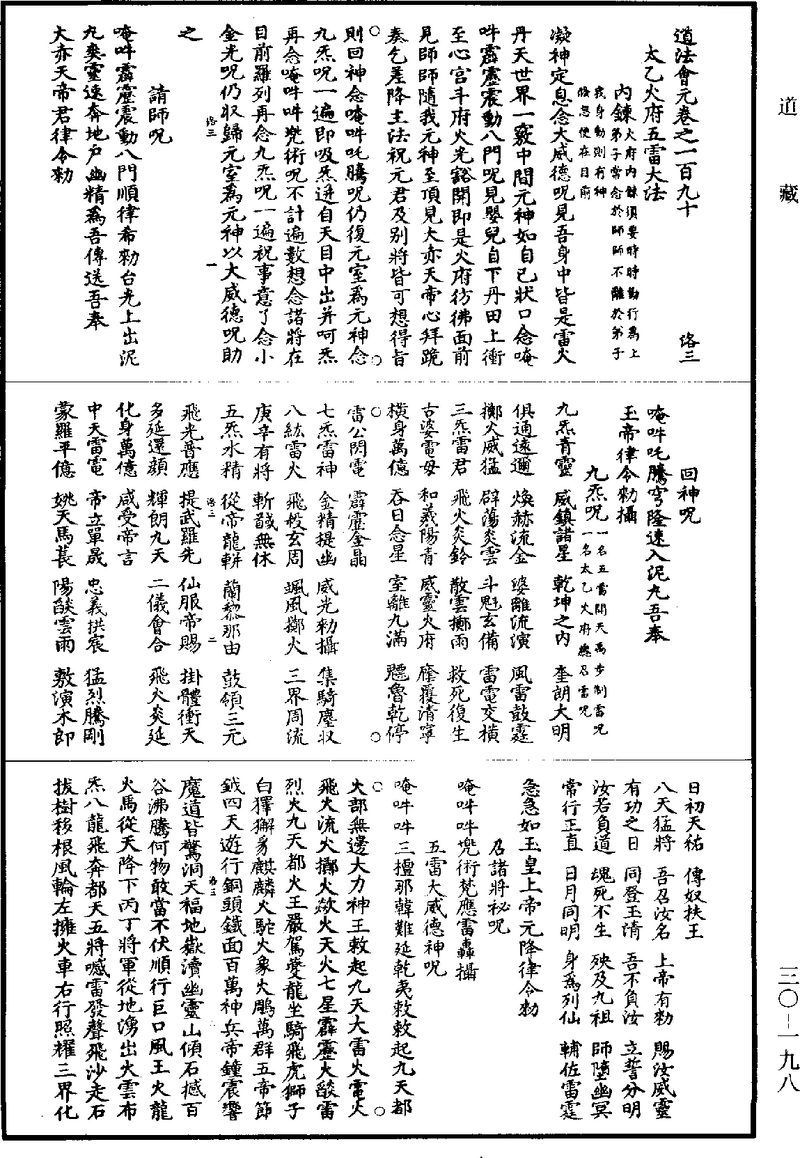 道藏
三〇—一九八
道法會元卷之一百九十
洛三
太乙火府五雷大法
內鍊火府內鍊須要時時勤行為上
弟子常念於師師不離於弟子
我身動則有神
倏忽便在目前
凝神定息念大威德呪見吾身中皆是雷火
丹天世界一竅中間元神如自己狀口念唵
吽霹靂震動八門呪見嬰兒自下丹田上衝
至心宮斗府火光豁開即是火府彷彿面前
見師師隨我元神至頂見大亦天帝心拜跪
奏乞差降主法祝元君及別將皆可想得旨
則回神念唵吽吒騰呪仍復元室為元神念
九炁呪一遍即吸炁迸自天目中出并呵炁
再念唵吽吽兠術呪不計遍數想念諸將在
目前羅列再念九炁呪一遍祝事意了念小
金光呪仍収歸元室為元神以大威德呪助
之
請師呪
唵吽霹靂震動八門順律希勑台光上出泥
九奭靈速奔地戶幽精為吾傳送吾奉
大亦天帝君律令勑
回神呪
唵吽吒騰穹隆速入泥九吾奉
玉帝律令勑攝
九炁呪一名五雷開天禹步制雷呪
一名太乙火府總召雷呪
九炁青靈 威鎮諸星 乾坤之內 奎朗大明
俱通遠邇 煥赫流金 婆離流演 風雷鼓霆
擲火威猛 辟蕩炎雲 斗魁玄備 雷電交橫
三炁雷君 飛火炎鈴 散雲擲雨 救死復生
古婆電母 和羲陽青 威靈火府 㢆覆清寧
橫身萬億 吞日念星 室離九滿 魒魯乾停
雷公閃電 霹靂金晶
七炁雷神 金精提幽 威光勑攝 集騎塵収
八紘雷火 飛殺玄周 颯風擲火 三界周流
庚辛有將 斬馘無休
五炁水精 從帝龍輧 蘭黎那由 鼓領三元
飛光普應 提武羅先 仙服帝賜 掛體衝天
多延還顔 輝朗九天 二儀會合 飛火炎延
化身萬億 咸受帝言
中天雷電 帝立單晟 忠義拱宸 猛烈騰剛
蒙羅平億 姚天馬萇 陽燄雲雨 敷演木郎
日初天祐 傳奴扶王
八天猛將 吾召汝名 上帝有勑 賜汝威靈
有功之日 同登玉清 吾不負汝 立誓分明
汝若負道 魂死不生 殃及九祖 師墮幽冥
常行正直 日月同明 身為列仙 輔佐雷霆
急急如玉皇上帝元降律令勑
召諸將祕呪
唵吽吽兠術梵應雷轟攝
五雷大威德神呪
唵吽吽三檀那韓難延乾夷敕敕起九天都
大部無邊大力神王敕起九天大雷火電火
飛火流火擲火歘火天火七星霹靈火燄雷
烈火九天都火王嚴駕夔龍坐騎飛虎獅子
白獐獬豸麒麟火駝火象火鵬萬群五帝節
鉞四天遊行銅頭鐵面百萬神兵帝鐘震響
魔道皆驚洞天福地嶽瀆幽靈山傾石撼百
谷沸騰何物敢當不伏順行巨口風王火龍
火馬從天降下丙丁將軍從地湧出火雲布
炁八龍飛奔都天五將嘁雷發聲飛沙走石
拔樹移根風輪左擁火車右行照耀三界化